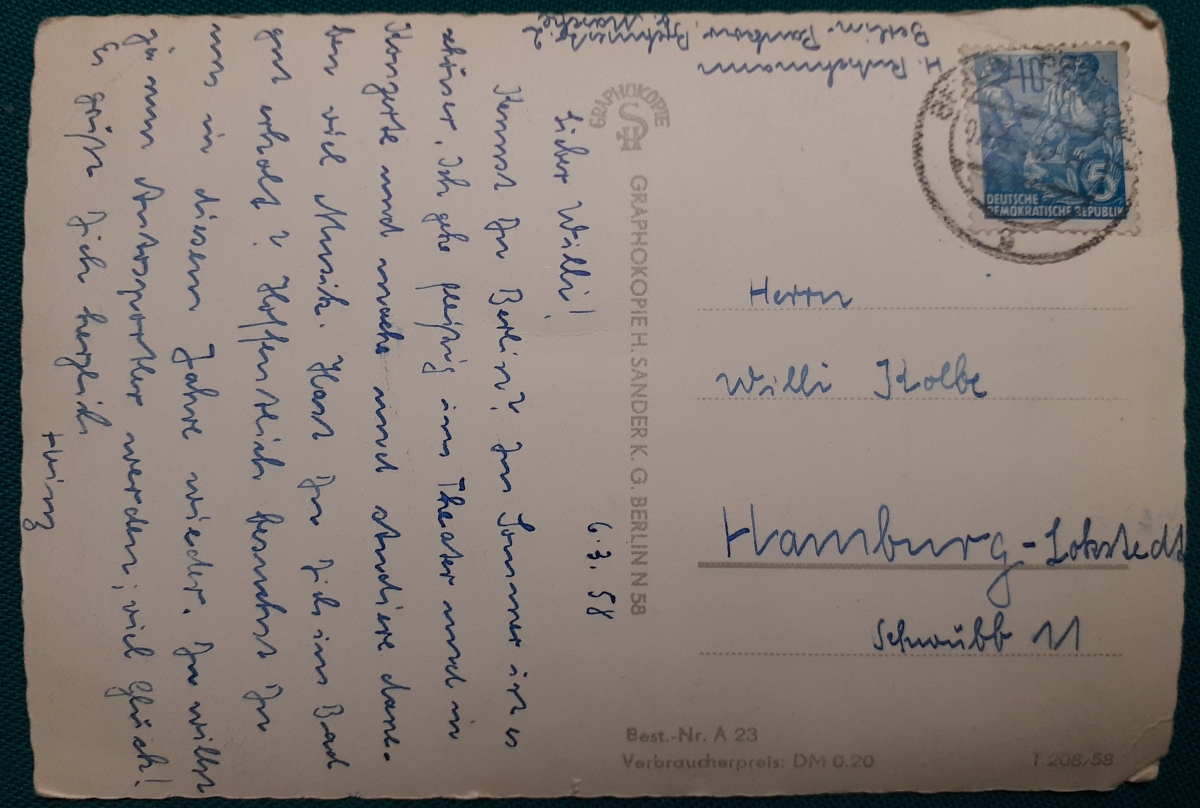 H. Ruhehmann
Berlin-Pankow, Behmestr. 2
b. Masche
6.3.58
Lieber Willi!
Kennst Du Berlin? Im Sommer ist es
schöner. Ich gehe fleißig ins Theater und in
Konzerte und mache und studiere dane-
ben viel Musik. Hast Du Dich im Bad
gut erholt? Hoffentlich besuchst Du
uns in diesem Jahre wieder. Du willst
ja nun Autosportler werden; viel Glück!
Es grüßt Dich herzlich
Heinz
GRAPHOKOPIE
GRAPHOKOPIE H. SANDER K. G. BERLIN N 58
10
5
DEUTSCHE
DEMOKRATISCHE REPUBLIK
Herrn
Willi Kolbe
Hamburg-Lokstedt
Schwübb 11
Best.-Nr. A 23
Verbraucherpreis: DM 0.20
T 208/58